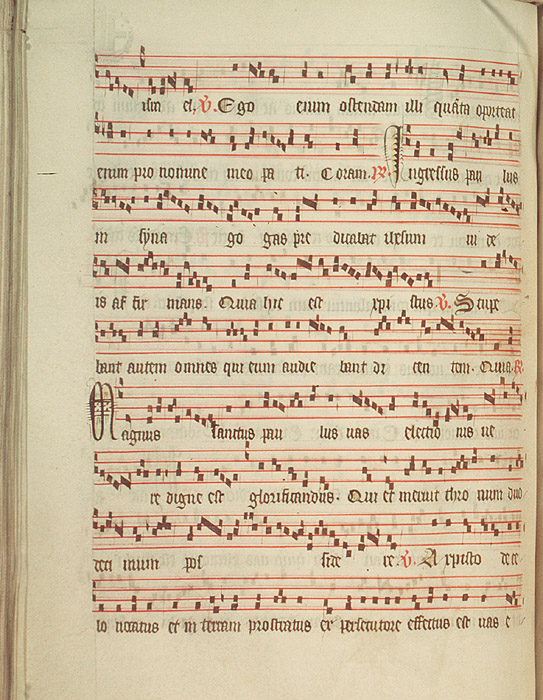 isra el. V. Ego enim ostendam illi quanta oporteat
enim pro nomine meo pa ti. Coram. R. Ingressus pau lus
in syna go gas pre dicabat ihesum iu de
is affir mans. Quia hic est xpi stus. V. Stupe
bant autem omnes qui eum audie bant di cen tem. Quia. R.
Magnus sanctus pau lus uas electio nis ue
re digne est glorificandus. Qui et meruit thro num duo
deci mum pos side re. V. A xpisto de ce
lo uocatus et in terram prostratus ex persecutore effectus est uas e